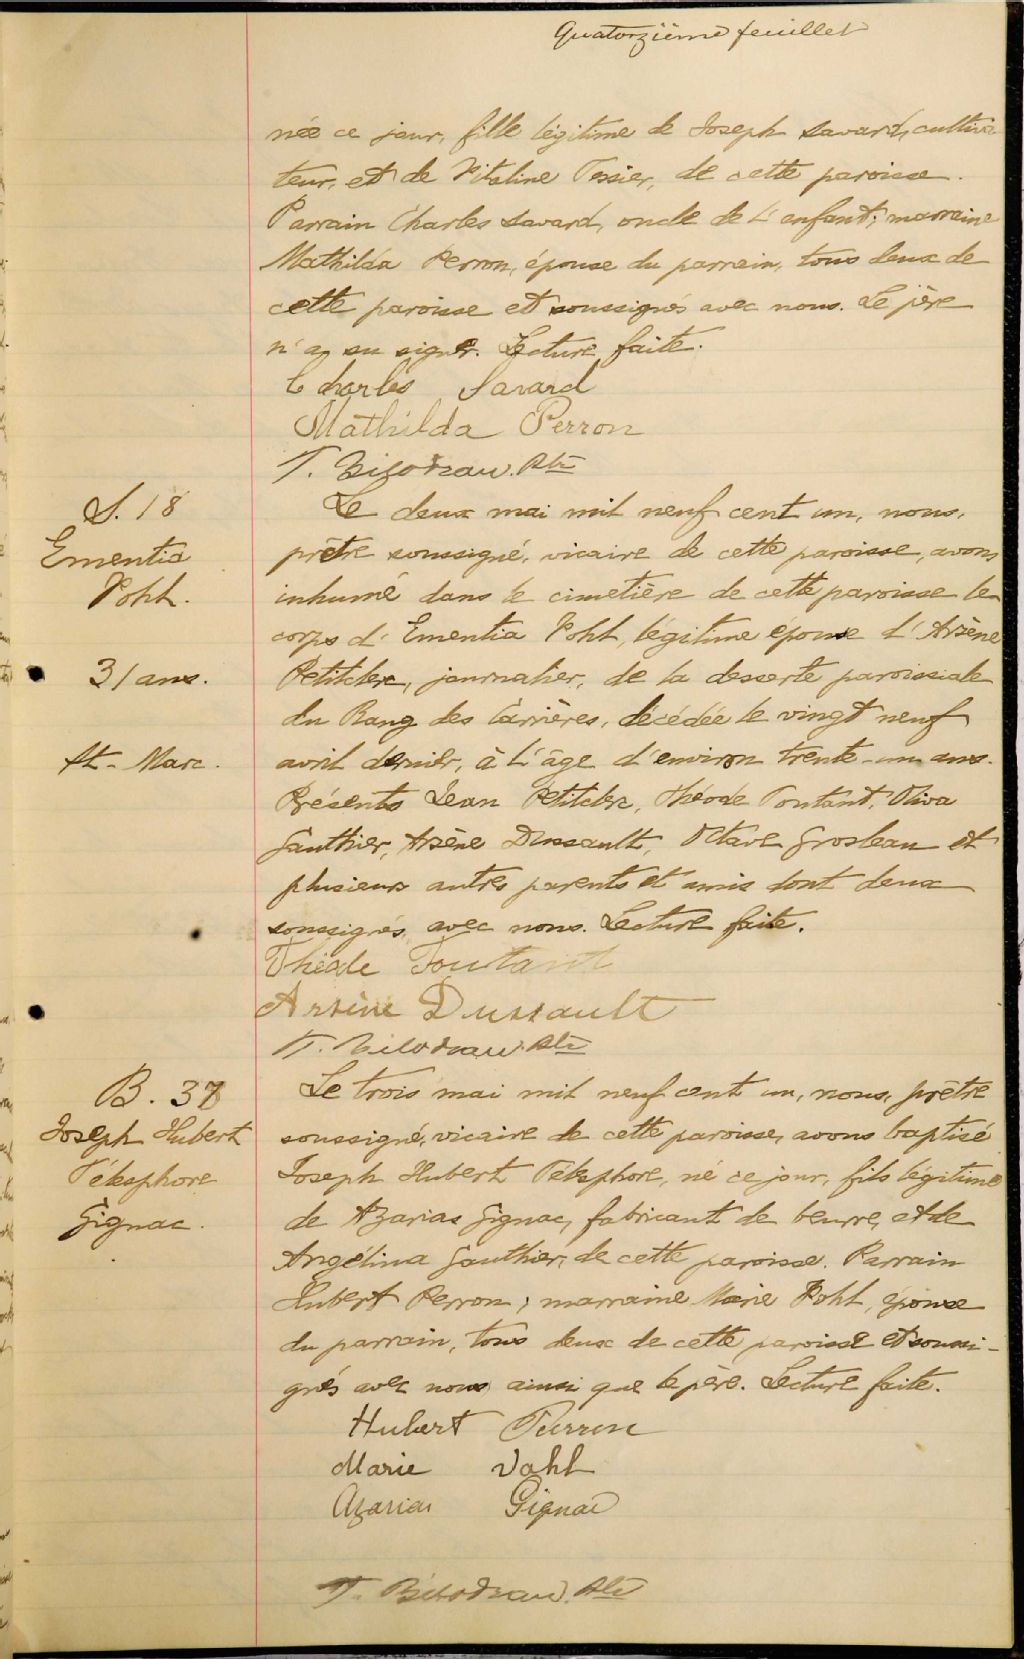 Quatorzième feuillet
née ce jour, fille légitime de Joseph Savard, cultiva-
teur, et de Vitaline Tessier, de cette paroisse.
Parrain Charles Savard, oncle de l'enfant; marraine
Mathilda Perron, épouse du parrain, tous deux de
cette paroisse et soussignés avec nous. Le père
n'a su signer. Lecture faite.
Charles Savard
Mathilda Perron
T. Bilodeau Ptre
S. 18
Ementia
Pohl.
31 ans.
St-Marc.
Le deux mai mil neuf cent un, nous,
prêtre soussigné, vicaire de cette paroisse, avons
inhumé dans le cimetière de cette paroisse le
corps d'Ementia Pohl, légitime épouse d'Arsène
Petitclerc, journalier, de la desserte paroissiale
du Rang des Carrières, décédée le vingt neuf
avril dernier, à l'âge d'environ trente-un ans.
Présents Jean Petitclerc, Théode Toutant, Oliva
Gauthier, Arsène Dussault, Octave Grosleau et
plusieurs autres parents et amis dont deux
soussignés avec nous. Lecture faite.
Théode Toutant
Arsène Dussault
T. Bilodeau Ptre
B. 37
Joseph Hubert
Télesphore
Gignac.
Le trois mai mil neuf cent un, nous, prêtre
soussigné, vicaire de cette paroisse, avons baptisé
Joseph Hubert Télesphore, né ce jour, fils légitime
de Azarias Gignac, fabricant de beurre, et de
Angélina Gauthier, de cette paroisse. Parrain
Hubert Perron; marraine Marie Pohl, épouse
du parrain, tous deux de cette paroisse et soussi-
gnés avec nous ainsi que le père. Lecture faite.
Hubert Perron
Marie Vohl
Azarias Gignac
T. Bilodeau Ptre